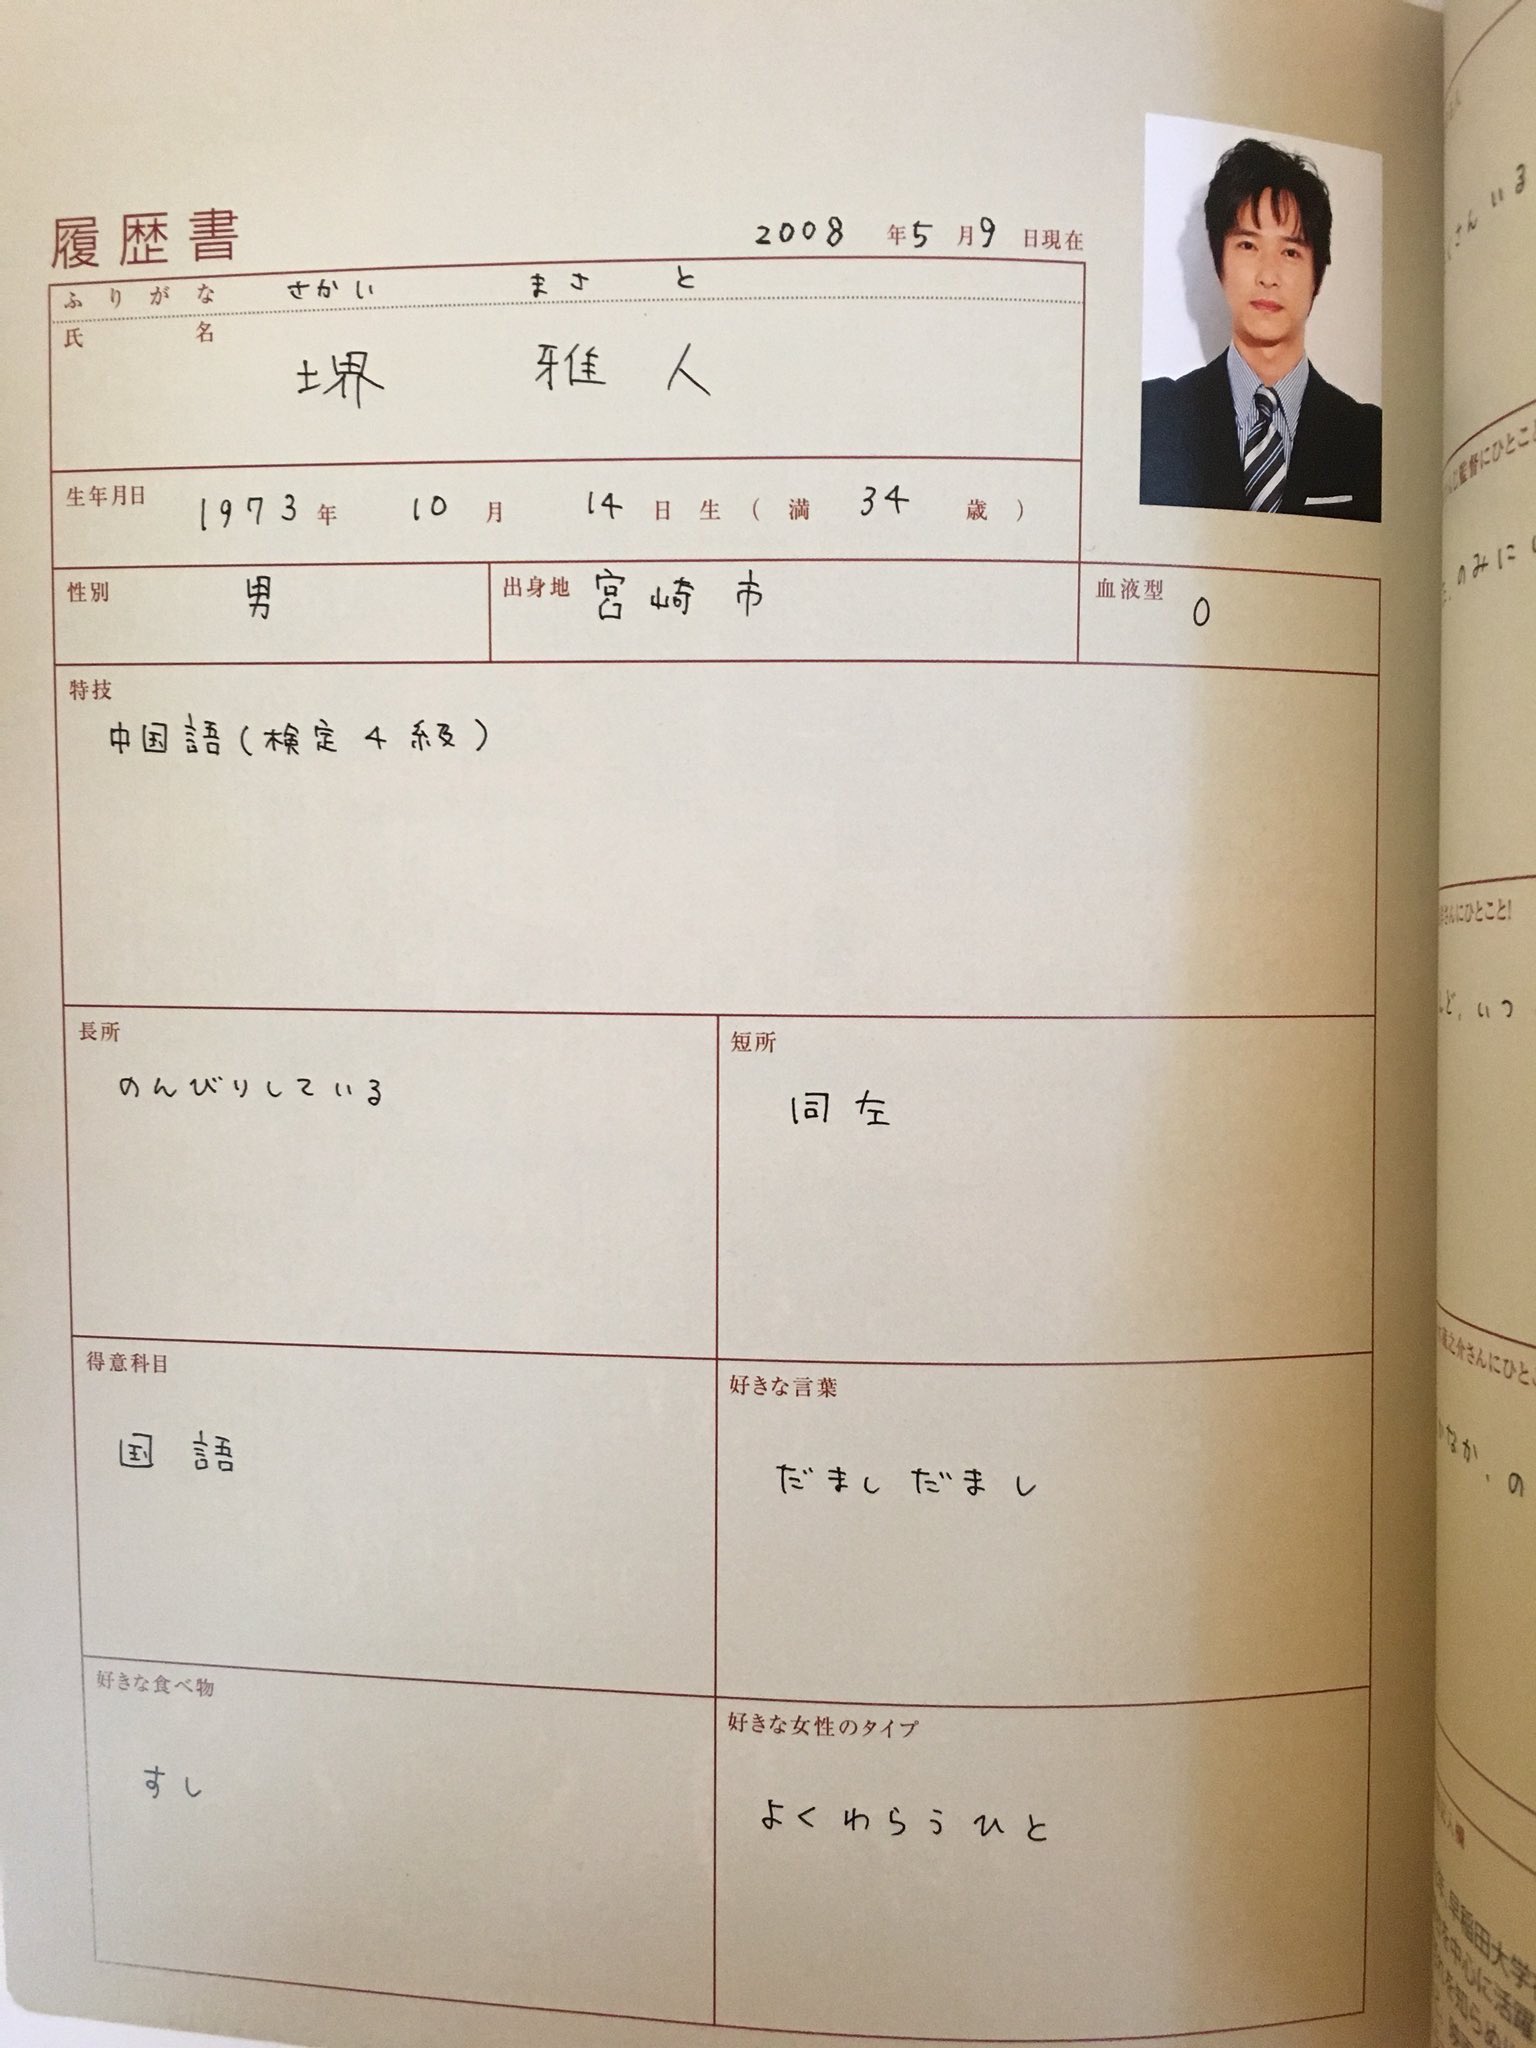 履歴書
2008年5月9日現在
ふりがな さかい まさと
氏名 堺 雅人
生年月日 1973年 10月 14日生(満 34 歳)
性別 男 出身地 宮崎市 血液型 O
特技
中国語(検定4級)
長所
のんびりしている
短所
同左
得意科目
国語
好きな言葉
だましだまし
好きな食べ物
すし
好きな女性のタイプ
よくわらうひと
さん いる
監督にひとこと
のみに
さんにひとこと!
ど、いつ
之介さんにひとこ
なか、の
早稲田大学
を中心に活躍
を知らめ